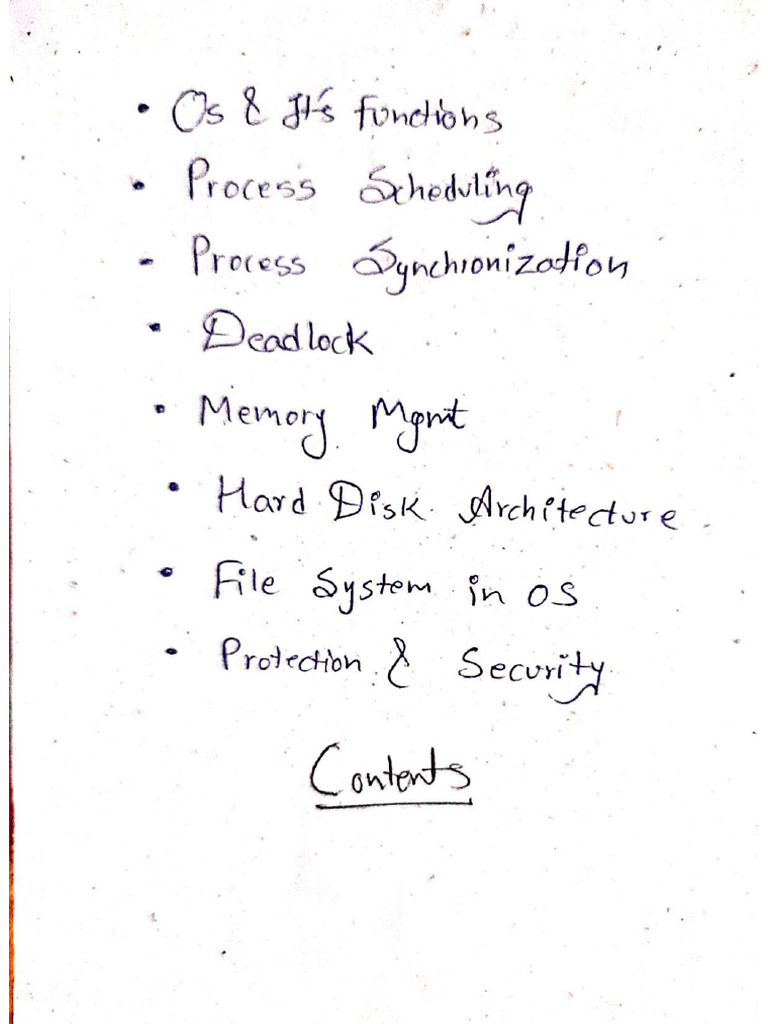 • Os & It's functions
• Process Scheduling
- Process Synchronization
• Deadlock
• Memory Mgmt
• Hard Disk Architecture
• File System in OS
• Protection & Security
Contents